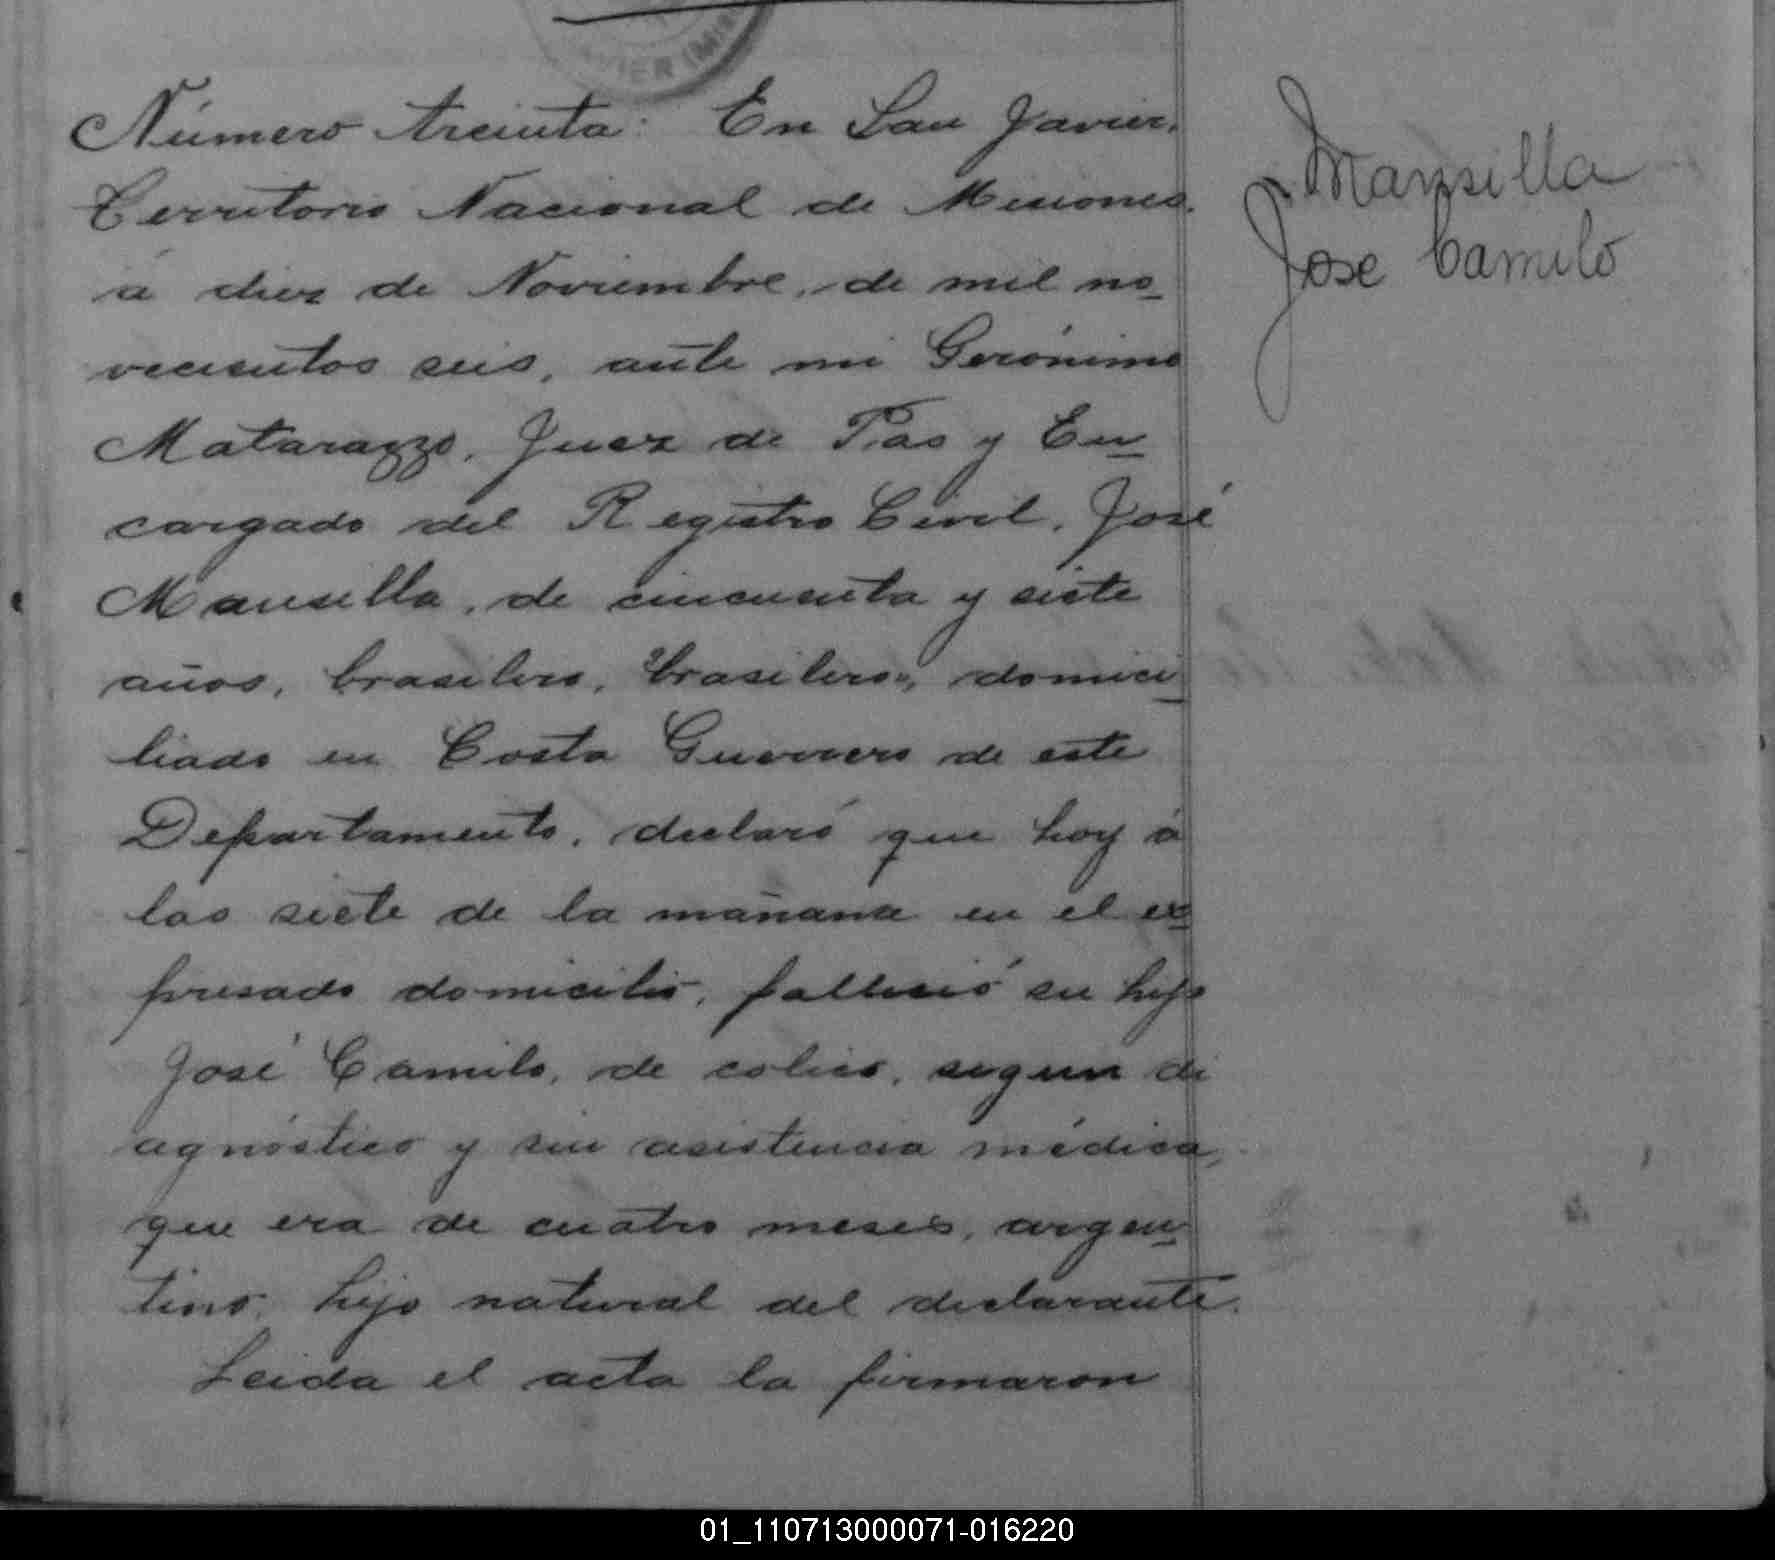 VIER (MIS
Número treinta: En San Javier,
Territorio Nacional de Misiones,
á diez de Noviembre, de mil no-
vecientos seis, ante mi Gerónimo
Matarazzo, Juez de Pas y En-
cargado del Registro Civil, José
Mansilla, de cincuenta y siete
años, brasilero, "brasilero", domici-
liado en Costa Guerrero de este
Departamento, declaró que hoy á
las siete de la mañana en el ex-
presado domicilio, falleció su hijo
José Camilo, de colico, segun di
agnóstico y sin asistencia médica,
que era de cuatro meses, argen-
tino, hijo natural del declarante.
Leida el acta la firmaron
Mansilla
Jose Camilo
01_110713000071-016220